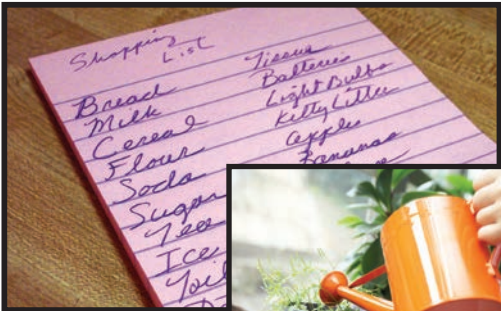 Shopping
List
Bread
Milk
Cereal
Flour
Soda
Sugar
Tea
Ice
Tissue
Batteries
Light Bulbs
Kitty Litter
apples
Bananas